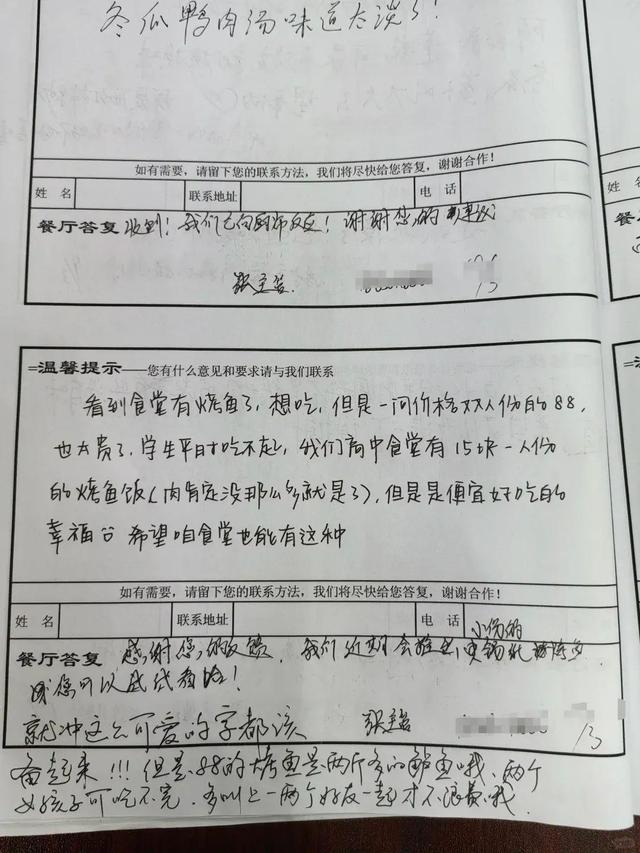 冬瓜鸭肉汤味道太淡了!
如有需要，请留下您的联系方法，我们将尽快给您答复，谢谢合作！
姓 名 联系地址 电 话
餐厅答复 收到! 我们已向厨师反应! 谢谢您的建议
张主管.
=温馨提示——您有什么意见和要求请与我们联系
看到食堂有烤鱼了，想吃，但是一问价格双人份的88，
也太贵了，学生平时吃不起，我们高中食堂有15块一人份
的烤鱼饭(肉肯定没那么多就是了)，但是是便宜好吃的
幸福 希望咱食堂也能有这种
如有需要，请留下您的联系方法，我们将尽快给您答复，谢谢合作！
姓 名 联系地址 电 话
小份的
餐厅答复 感谢您的反馈，我们近期会推出
您可以
就冲这么可爱的字都该 张主管
奋起来!!! 但是88的烤鱼是两斤多的鲈鱼哦，两个
女孩子可吃不完，多叫上一两个好友一起才不浪费哦.
餐厅答复